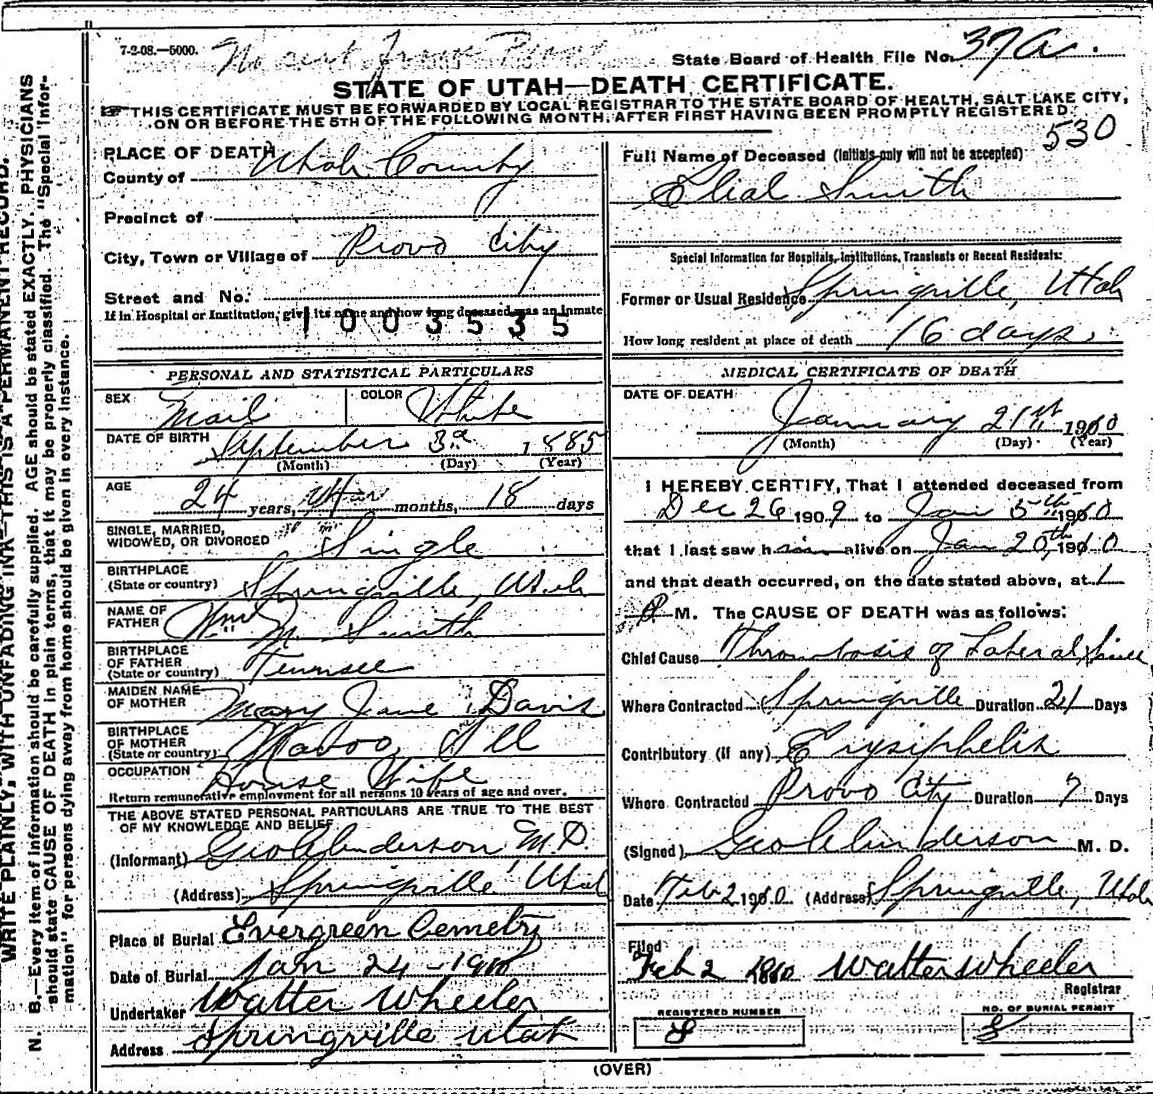 7-2-08.—5000.
State Board of Health File No. 37a.
STATE OF UTAH—DEATH CERTIFICATE.
THIS CERTIFICATE MUST BE FORWARDED BY LOCAL REGISTRAR TO THE STATE BOARD OF HEALTH, SALT LAKE CITY,
ON OR BEFORE THE 5TH OF THE FOLLOWING MONTH, AFTER FIRST HAVING BEEN PROMPTLY REGISTERED.
530
PLACE OF DEATH
County of Utah County
Precinct of
City, Town or Village of Provo City
Street and No.
If in Hospital or Institution, give its name and how long deceased was an inmate
1003535
Full Name of Deceased (initials only will not be accepted)
Elial Smith
Special Information for Hospitals, Institutions, Transients or Recent Residents:
Former or Usual Residence Springville, Utah
How long resident at place of death 16 days.
PERSONAL AND STATISTICAL PARTICULARS
SEX Mail
COLOR White
DATE OF BIRTH September 3d 1885
(Month) (Day) (Year)
AGE
24 years, months, 18 days
SINGLE, MARRIED,
WIDOWED, OR DIVORCED Single
BIRTHPLACE
(State or country) Springville, Utah
NAME OF
FATHER Wm M. Smith
BIRTHPLACE
OF FATHER
(State or country) Tennsee
MAIDEN NAME
OF MOTHER Mary Jane Davis
BIRTHPLACE
OF MOTHER
(State or country) Ill
OCCUPATION House Wife
Return remunerative employment for all persons 10 years of age and over.
THE ABOVE STATED PERSONAL PARTICULARS ARE TRUE TO THE BEST
OF MY KNOWLEDGE AND BELIEF
(Informant) Geo Anderson M.D.
(Address) Springville Utah
Place of Burial Evergreen Cemetry
Date of Burial Jan 24-1910
Undertaker Walter Wheeler
Address Springville Utah
MEDICAL CERTIFICATE OF DEATH
DATE OF DEATH
January 21st 1910
(Month) (Day) (Year)
I HEREBY CERTIFY, That I attended deceased from
Dec 26 1909 to Jan 5th 1910
that I last saw him alive on Jan 20th, 1910
and that death occurred, on the date stated above, at 1
P M. The CAUSE OF DEATH was as follows:
Chief Cause Thrombosis of Lateral Sinus
Where Contracted Springville Duration 21 Days
Contributory (if any) Erysiphelis
Where Contracted Provo City Duration 7 Days
(Signed) Geo Anderson M. D.
Date Feb 2 1910. (Address) Springville, Utah
Filed
Feb 2 1910 Walter Wheeler
Registrar
REGISTERED NUMBER
8
NO. OF BURIAL PERMIT
8
(OVER)
WRITE PLAINLY, WITH UNFADING INK—THIS IS A PERMANENT RECORD.
N. B.—Every item of information should be carefully supplied. AGE should be stated EXACTLY. PHYSICIANS
should state CAUSE OF DEATH in plain terms, that it may be properly classified. The "Special Infor-
mation" for persons dying away from home should be given in every instance.